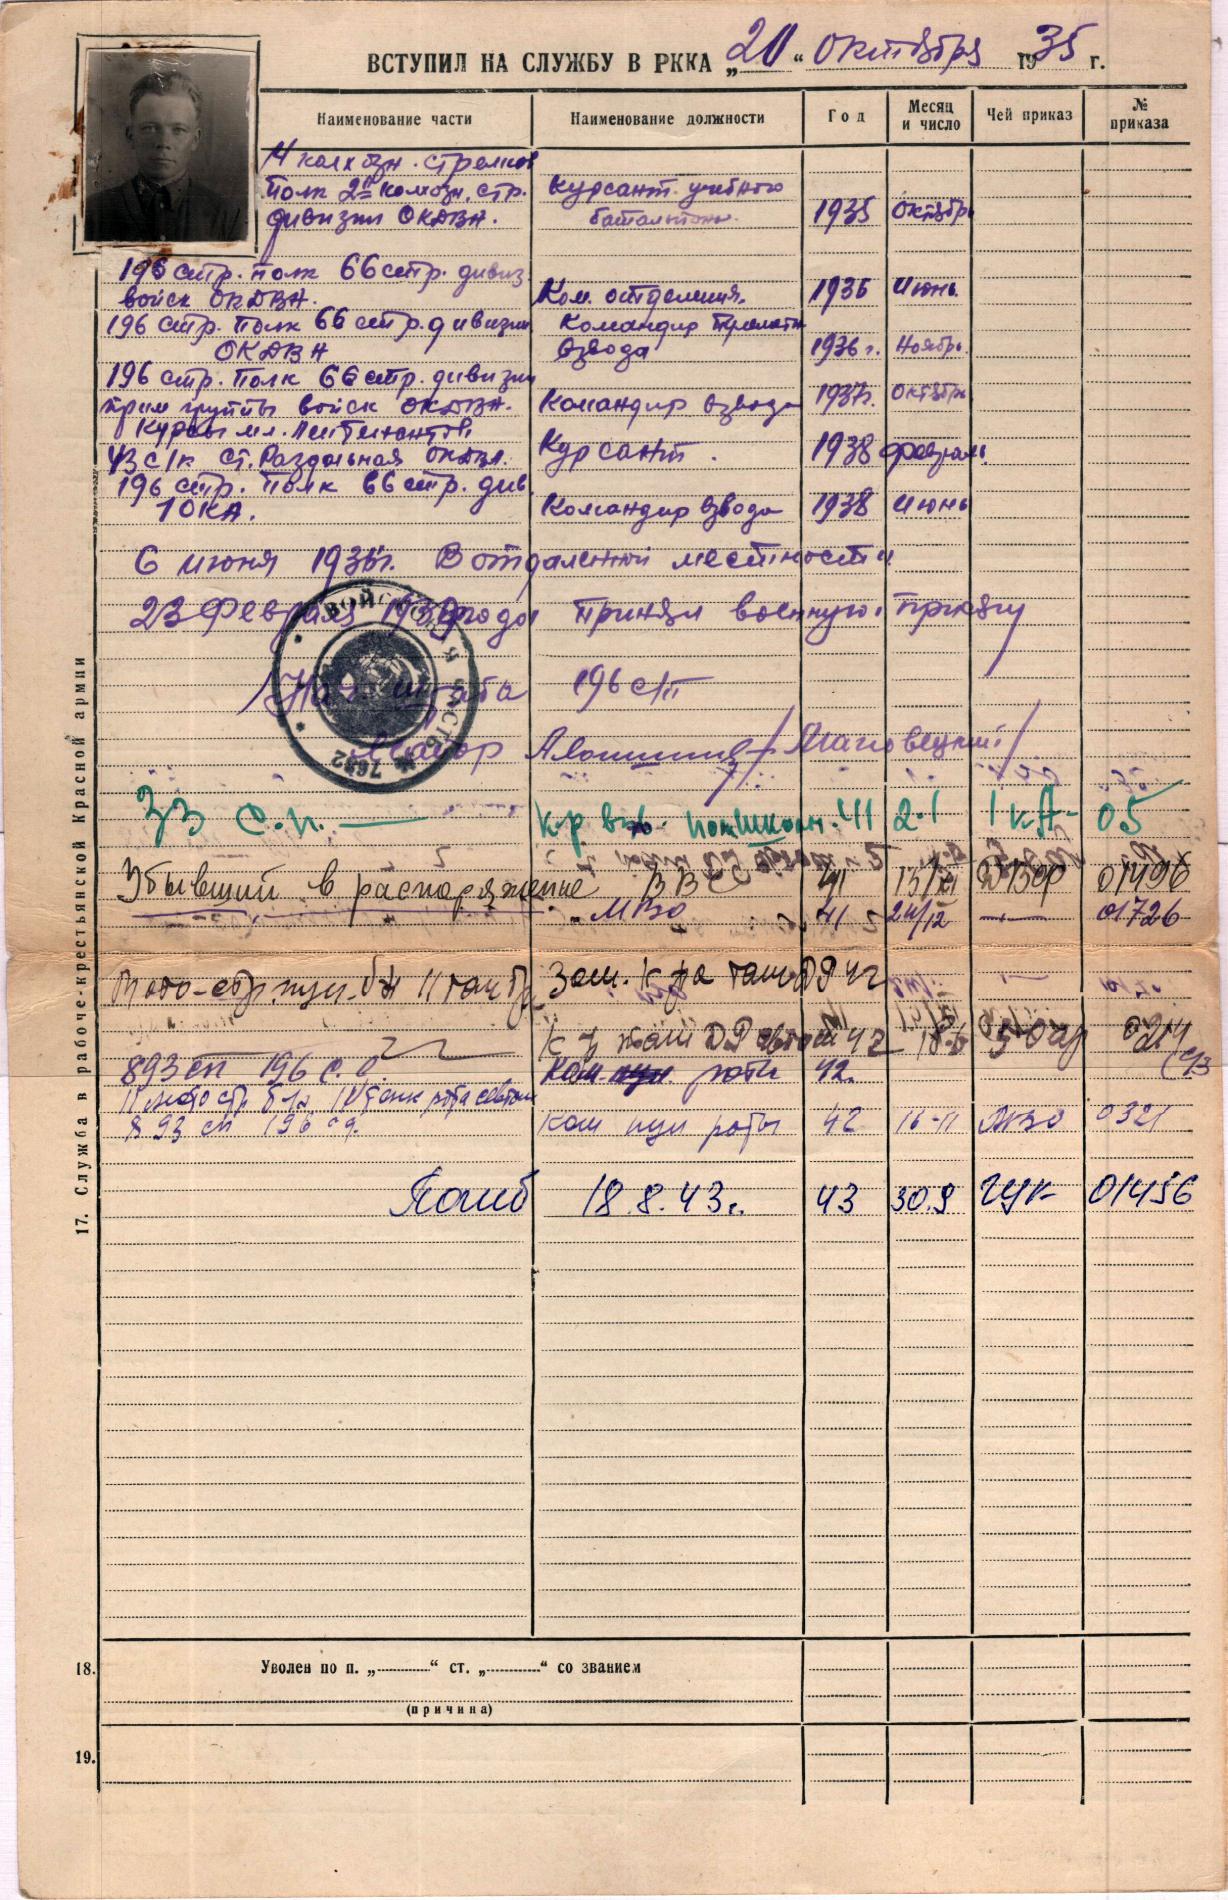 ВСТУПИЛ НА СЛУЖБУ В РККА „20“ октября 1935 г.
Наименование части Наименование должности Год Месяц и число Чей приказ № приказа
4 колхозн. стрелков
полк 2й колхозн. стр. Курсант учебного
дивизии ОКДВА. батальона 1935 октябрь
196 стр. полк 66 стр. дивиз.
войск ОКДВА. Ком. отделения. 1936 Июнь
196 стр. полк 66 стр. дивизии Командир
ОКДВА взвода 1936 г. Ноябрь
196 стр. полк 66 стр. дивизии
прим группы войск ОКДВА. Командир взвода 1937г. октябрь
Курсы мл. лейтенантов
43 с/к ст. Раздольная ОКДВА. Курсант. 1938 февраль
196 стр. полк 66 стр. див.
1 ОКА. Командир взвода 1938 Июнь
6 июня 1936г. В отдаленной местности
23 Февраля 1939 года принял военную присягу
Нач штаба 196 с/п
Майор
ВОЙСКОВАЯ ЧАСТЬ № 7632
33 с.п. — к-р вз. 41 2.1 1 КА- 05
Убывший в распоряжение ВВС 41 15/XI ДВФ 01496
„ МВО 41 24/12 —„— 01726
Мото-стр. пул. б-н 11 тан бр. Зам. к-ра 42
42 18.6 5 0214
893 сп 196 с.д. Ком. роты 42.
893 сп 196 сд. Ком пул роты 42 16-11 0321
Погиб 18.8.43г. 43 30.9 ГУК 01456
17. Служба в рабоче-крестьянской Красной армии
18. Уволен по п. „ “ ст. „ “ со званием
(причина)
19.